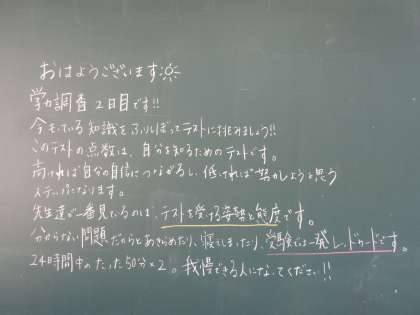 おはようございます☀
学力調査2日目です!!
今もっている知識をふりしぼってテストに挑みましょう!!
このテストの点数は、自分を知るためのテストです。
高ければ自分の自信につながるし、低ければ努力しようと思う
ステップになります。
先生達が一番見ているのは、テストを受ける姿勢と態度です。
分からない問題だからとあきらめたり、寝てしまったり、受験では一発レッドカードです。
24時間中のたった50分×2。我慢できる人になってください!!